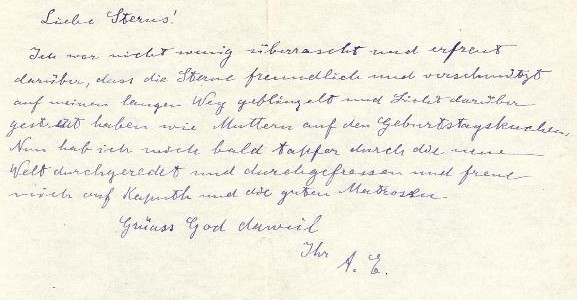 Liebe Sterns!
Ich war nicht wenig überrascht und erfreut
darüber, dass die Sterne freundlich und verschmitzt
auf meinen langen Weg geblinzelt und Licht darüber
gestreut haben wie Muttern auf den Geburtstagskuchen.
Nun hab ich mich bald tapfer durch die neue
Welt durchgeredet und durchgefressen und freue
mich auf Kaputh und die guten Matrosen.
Grüass God derweil
Ihr
A. E.